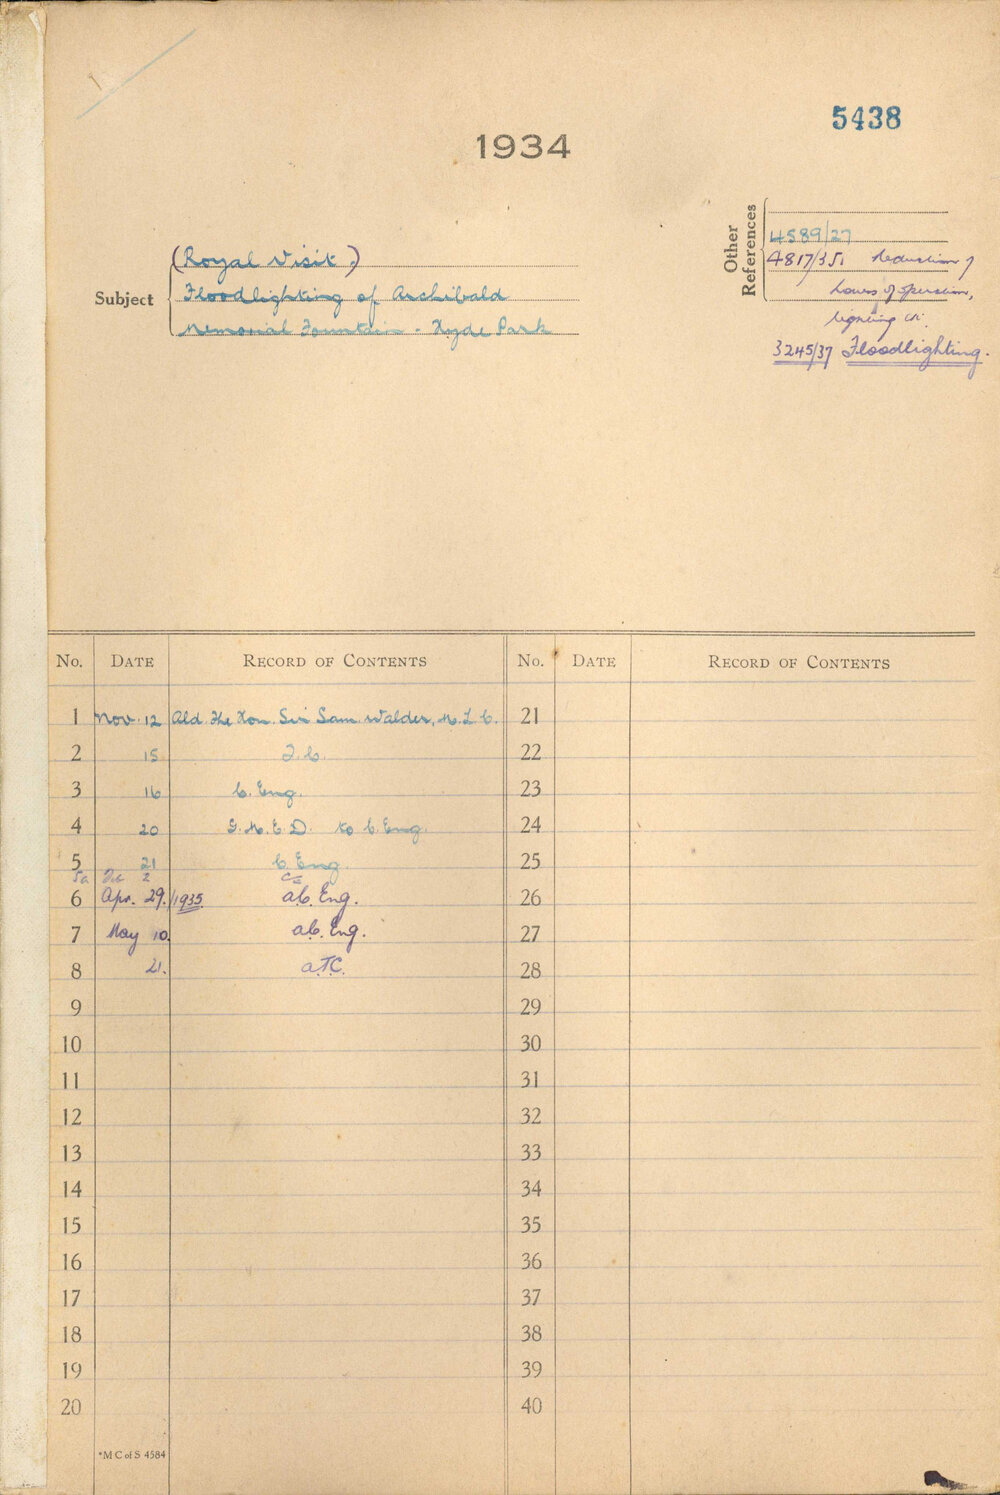 5438
1934
Other References
4589/27
4817/35. Reduction of
hours of operation,
lighting in
3245/37 Floodlighting.
Subject
(Royal Visit)
Floodlighting of Archibald
Memorial Fountain - Hyde Park
No. DATE RECORD OF CONTENTS No. DATE RECORD OF CONTENTS
1 Nov. 12 Ald. The Hon. Sir Sam Walder, M.L.C. 21
2 15 T.C. 22
3 16 C. Eng. 23
4 20 G.M.E.D. to C. Eng. 24
5 21 C. Eng. 25
5a Dec 2 CE
6 Apr. 29. /1935 a.C. Eng. 26
7 May 10. a.C. Eng. 27
8 21. a.T.C. 28
9 29
10 30
11 31
12 32
13 33
14 34
15 35
16 36
17 37
18 38
19 39
20 40
*M C of S 4584